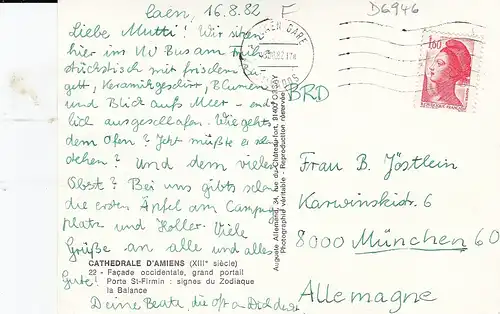 Caen, 16.8.82
F
D6946
Liebe Mutti! Wir sitzen
hier im VW Bus am Früh-
stückstisch mit frischem
gett, Keramikgeschirr, Blumen
und Blick aufs Meer - end
lich ausgeschlafen. Wie gehts
dem Ofen? Jetzt müßte er schon
stehen? Und dem vielen
Obst? Bei uns gibts schon
die ersten Äpfel am Camping
platz und Holler. Viele
Grüße an alle und alles
Gute!
Deine Beate, die oft an Dich denkt
CATHEDRALE D'AMIENS (XIIIe siècle)
22 - Façade occidentale, grand portail
Porte St-Firmin : signes du Zodiaque
la Balance
Auguste Allemand, 34, rue du Château-fort, 91400 ORSAY
Photographie véritable - Reproduction réservée
CAEN GARE
1,60
BRD
Frau B. Jöstlein
Karwinskistr. 6
8000 München 60
Allemagne